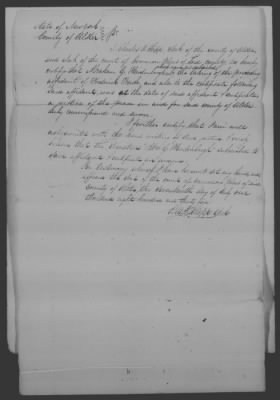 State of New York
County of Ulster } ss.
I Charles G. clerk of the county of Ulster
and clerk of the court of common pleas of said county do hereby
certify that Abraham G. Hardenbergh
before whom
the taking of the foregoing
affidavit of Frederick and also to the certificate following
said affidavit was at the date of said affidavit & certificate
a justice of the peace in and for said county of Ulster
duly commissioned and sworn.
I further certify that I am well
acquainted with the hand writing of said justice & verily
believe that the signature "Abm G. Hardenbergh" subscribed to
said affidavit & certificate are genuine.
In testimony whereof I have hereunto set my hand and
affixed the seal of the court of common pleas of said
County of Ulster the seventeenth day of July one
thousand eight hundred and thirty
Clerk